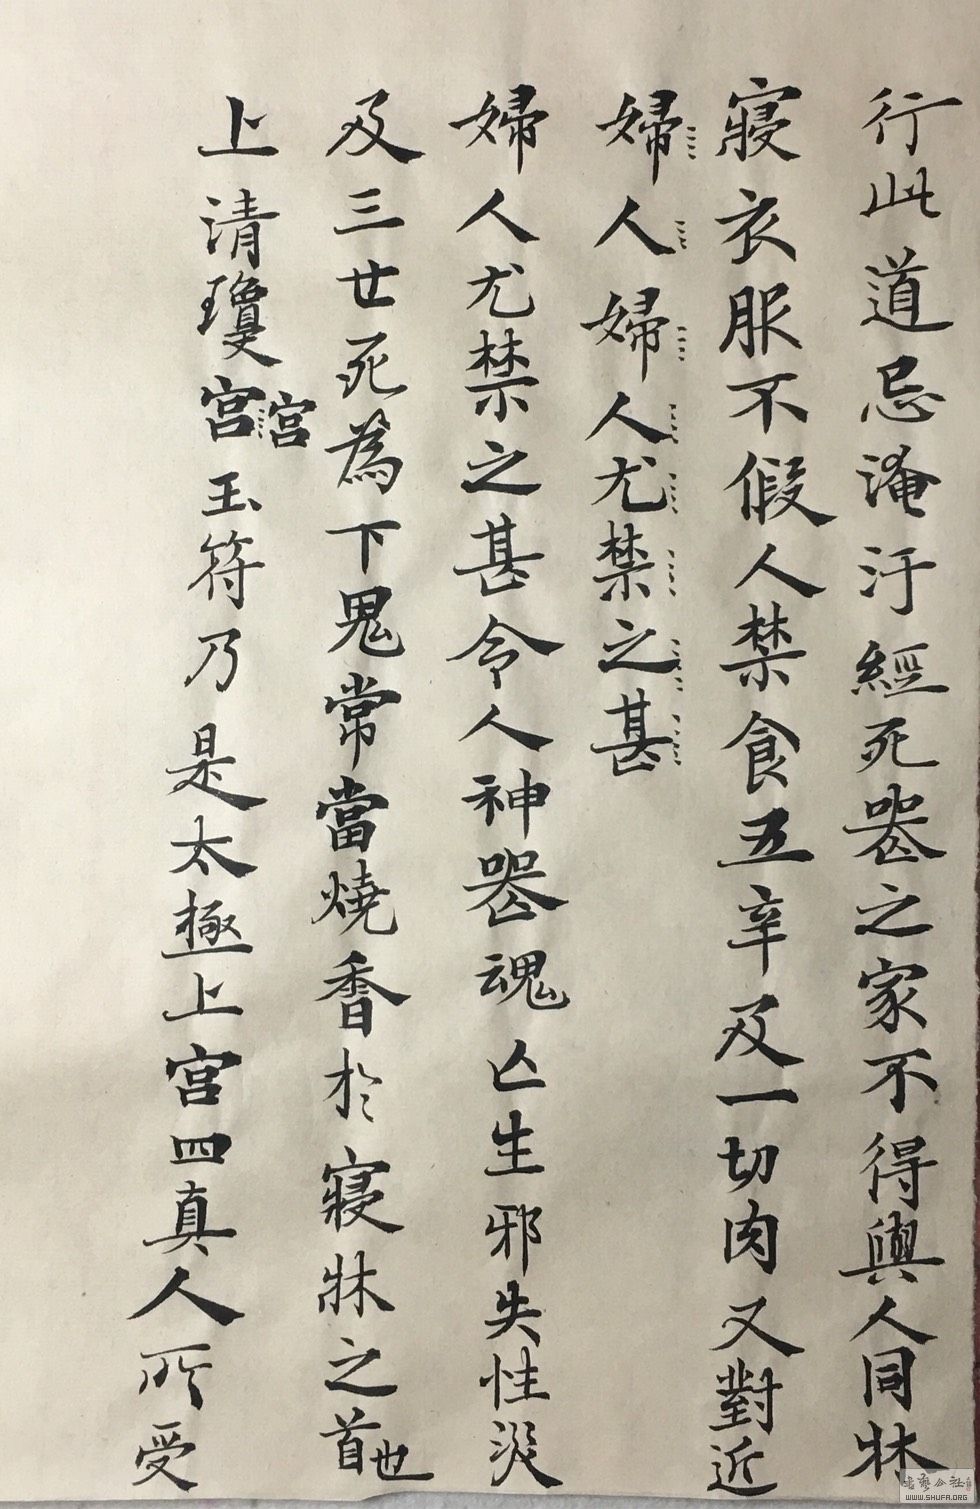 行此道忌淹汙經死喪之家不得與人同牀
寢衣服不假人禁食五辛及一切肉又對近
婦人婦人尤禁之甚
婦人尤禁之甚令人神喪魂亡生邪失性災
及三世死為下鬼常當燒香於寢牀之首也
上清瓊宮宮玉符乃是太極上宮四真人所受
書藝公社
WWW.SHUFA.ORG